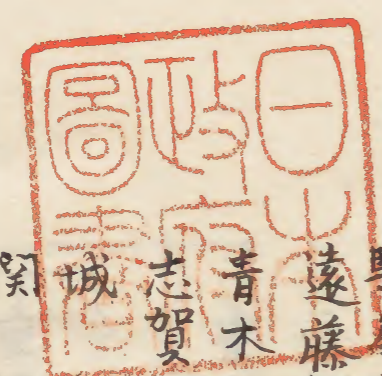 日本
政府
圖書
遠藤
青木
志賀
城
関